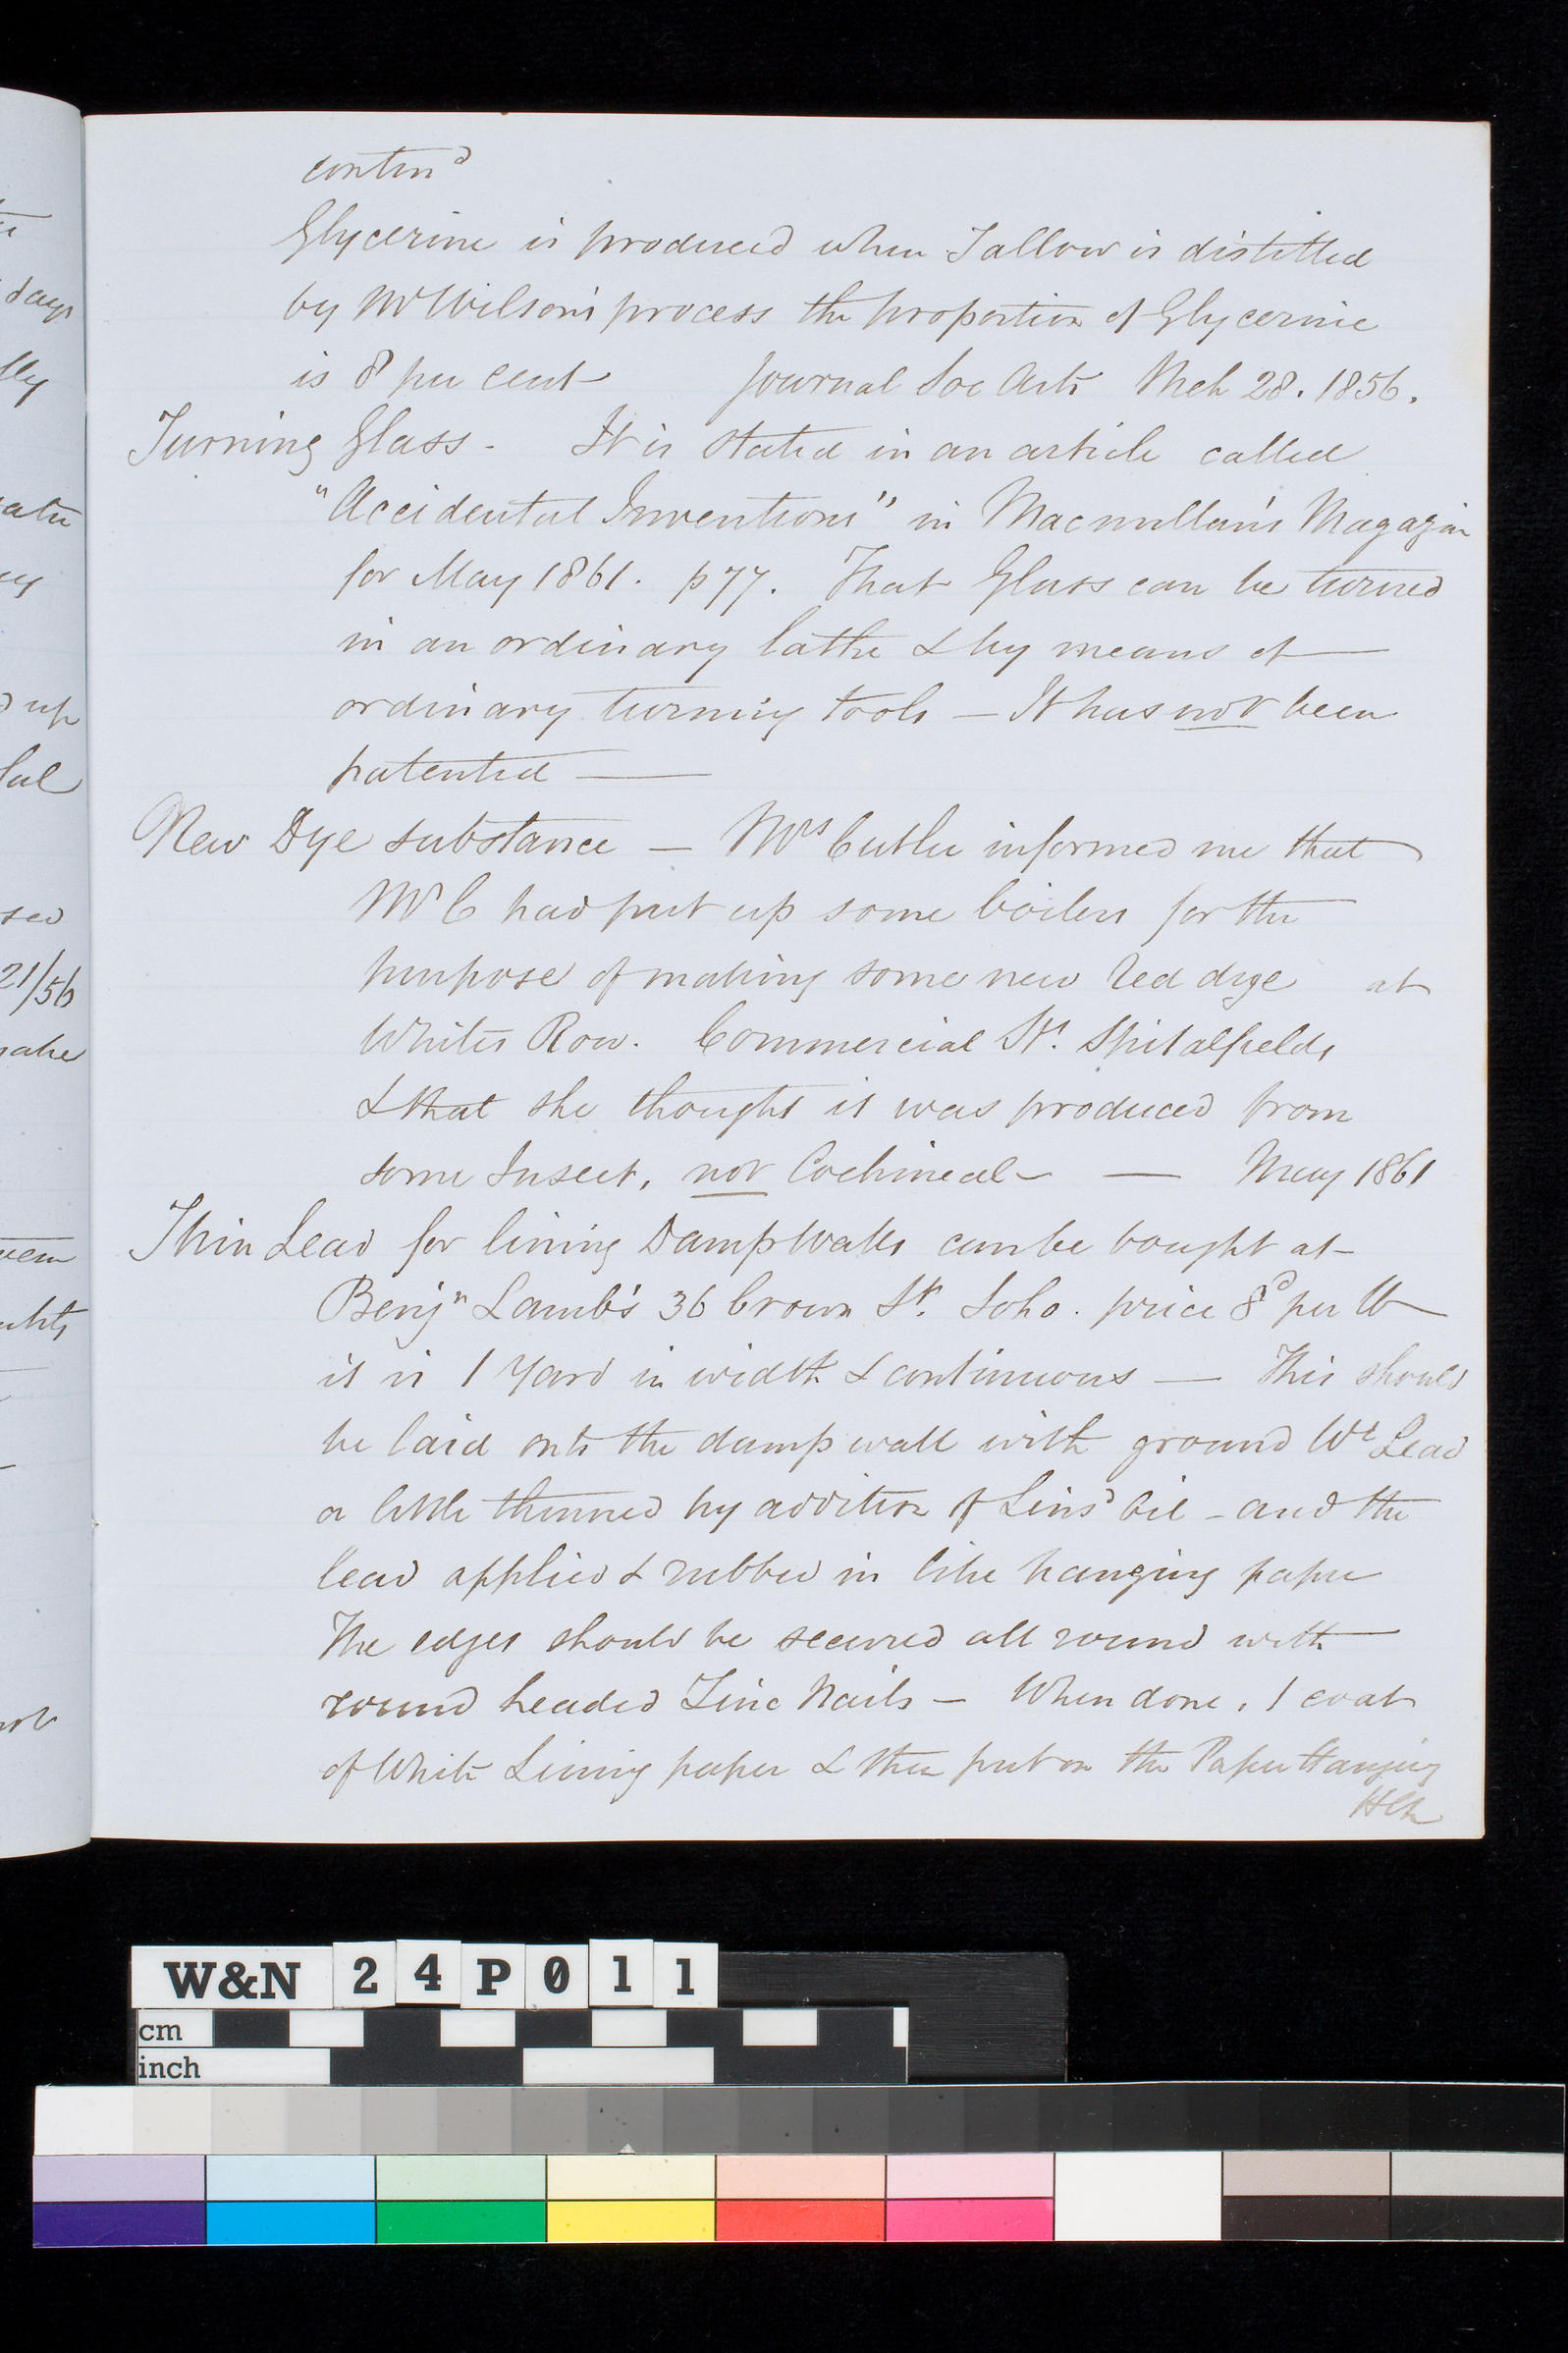 contin^d
Glycerine is produced when Tallow is distilled
by Mr Wilson's process the proportion of Glycerine
is 8 per cent Journal Soc Arts Mch 28. 1856.
Turning Glass - It is stated in an article called
"Accidental Inventions" in Macmillan's Magazin
for May 1861. p 77. That Glass can be turned
in an ordinary lathe & by means of —
ordinary turning tools — It has not been
patented —
New Dye substance — Mrs Cutler informed me that
Mr C had put up some boilers for the
purpose of making some new Red dye at
Whites Row. Commercial St. Spitalfields
& that she thought it was produced from
some Insect, not Cochineal — — May 1861
Thin Lead for lining Damp Walls can be bought at
Benjn Lamb's 36 Crown St. Soho. price 8d per lb
it is 1 Yard in width & continuous — This should
be laid onto the damp wall with ground We Lead
a little thinned by addition of Linsd Oil - and the
lead applied & rubbed in like hanging paper
The edges should be secured all round with
round headed Zinc Nails — When done, 1 coat
of White Lining paper & then put on the Paper Hanging
days
21/56
up
W&N 24P011
cm
inch